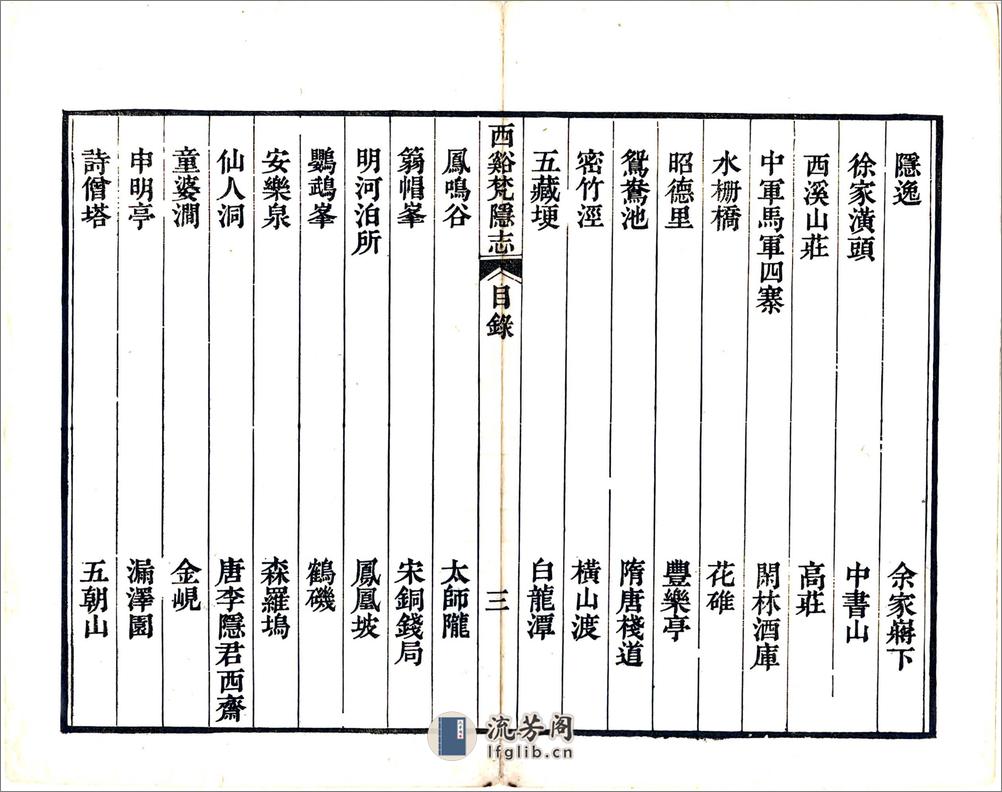 隱逸　余家蔣下
徐家潢頭　中書山
西溪山莊　高莊
中軍馬軍四寨　閑林酒庫
水栅橋　花碓
昭德里　豐樂亭
鴛鴦池　隋唐棧道
密竹涇　橫山渡
五藏埂　白龍潭
西谿梵隱志　目錄　三
鳳鳴谷　太師隴
蒻帽峯　宋銅錢局
明河泊所　鳳凰坡
鸚鵡峯　鶴磯
安樂泉　森羅塢
仙人洞　唐李隱君西齋
童婆澗　金峴
申明亭　漏澤園
詩僧塔　五朝山
流芳阁
lfglib.cn